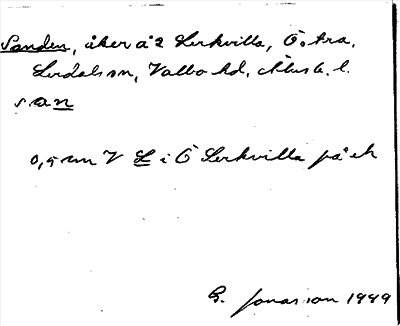 Sanden, åker å 2 Lerkvilla, Ö. tra.
Lerdals sn, Valbo hd, Älvsb. l.
san
0,5 mm V L i Ö Lerkvilla på ek
G. Jonasson 1949